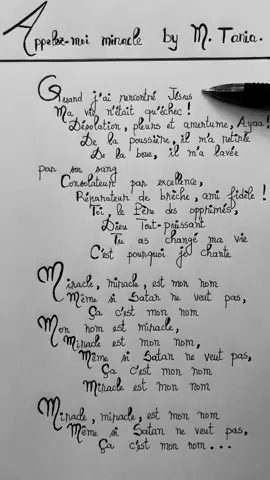 Appelez-moi miracle by M. Tania.
Quand j'ai rencontré Jésus
Ma vie n'était qu'échec !
Désolation, pleurs et amertume, Ayaa !
De la poussière, il m'a retirée
De la boue, il m'a lavée
par son sang
Consolateur par excellence,
Réparateur de brèche, ami fidèle !
Toi, le Père des opprimés,
Dieu Tout-puissant
Tu as changé ma vie
C'est pourquoi je chante
Miracle, miracle, est mon nom
Même si Satan ne veut pas,
Ça c'est mon nom
Mon nom est miracle,
Miracle est mon nom,
Même si Satan ne veut pas,
Ça c'est mon nom
Miracle est mon nom
Miracle, miracle, est mon nom
Même si Satan ne veut pas,
Ça c'est mon nom...